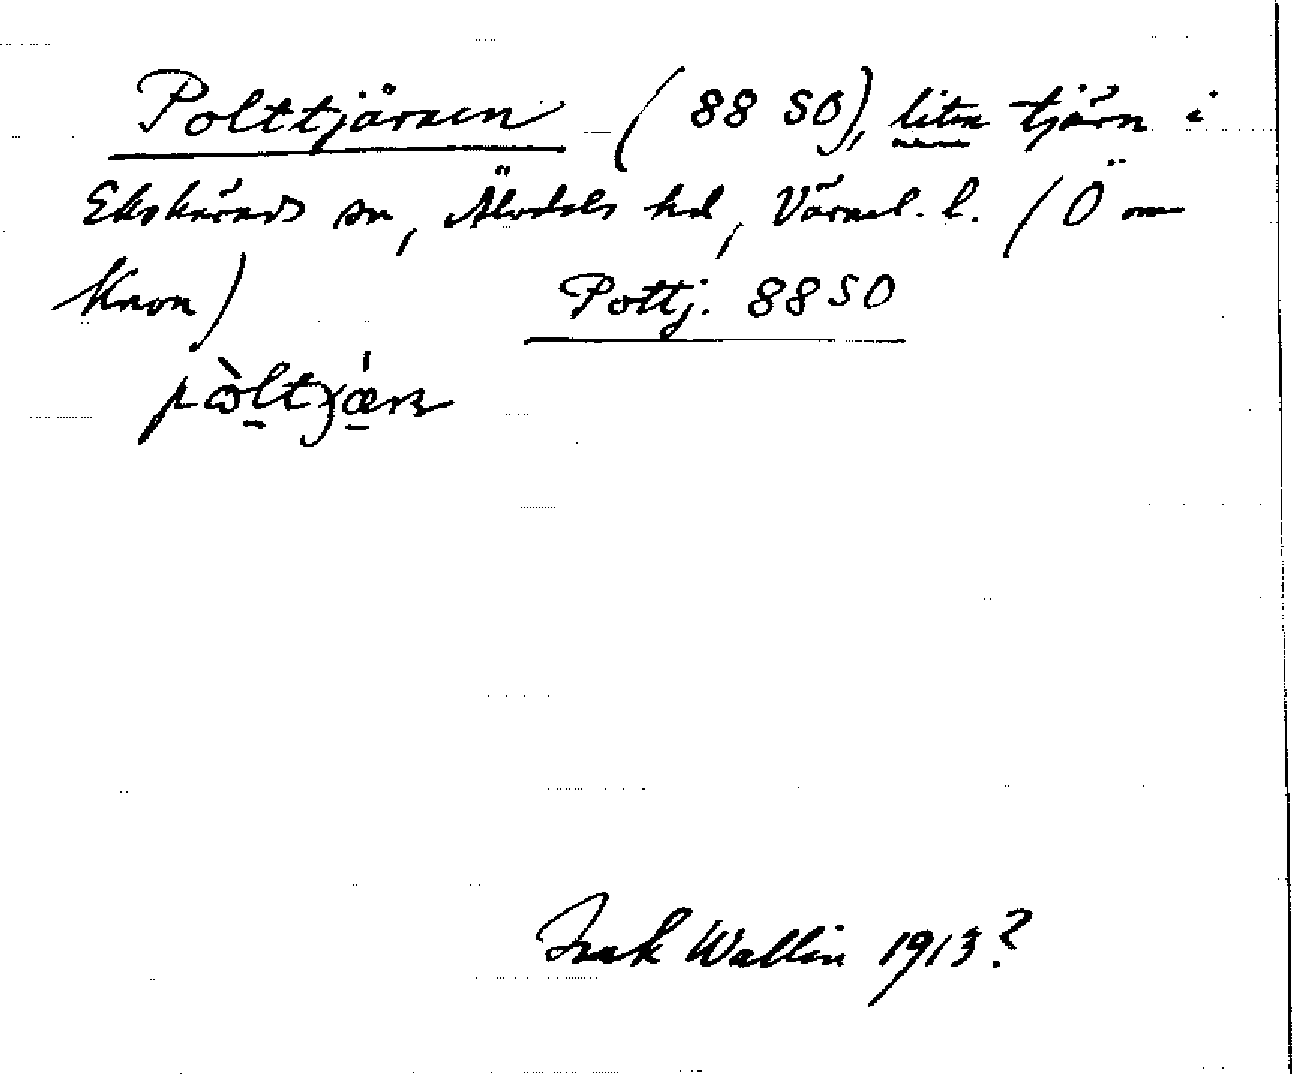 Polttjärnen (88 SO), liten tjärn i
Ekshärads sn, Älvdals hd, Värml. l. (Ö om
Knon)
Pottj. 88 SO
pòltjǽrn
Isak Wallin 1913?